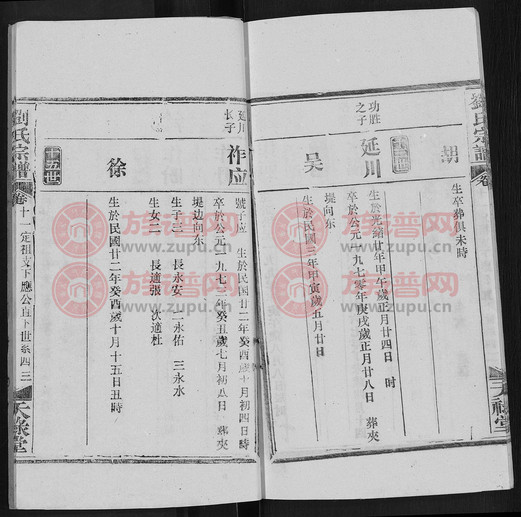 劉氏宗譜 卷
胡
生卒葬俱未詳
功胜之子
延川
生於光緒廿年甲午歲正月廿四日 时
卒於公元一九七零年庚戌歲正月廿八日 葬夾
堤向东
吴
生於民國三年甲寅歲五月廿日
天禄堂
延川长子
祚应
號子应 生於民國廿二年癸酉歲十月初四日時
卒於公元一九七三年癸丑歲七月初八日 葬夾
堤边向东
生子三 長永安 二永佑 三永水
生女二 長適張 次適杜
十五世
徐
生於民國廿二年癸酉歲十月十五日丑時
劉氏宗譜 卷十一 定祖支下應公直下世系四三
天禄堂
族谱网
www.zupu.cn
族谱网
www.zupu.cn
族谱网
www.zupu.cn
族谱网
www.zupu.cn
族谱网
www.zupu.cn
族谱网
www.zupu.cn